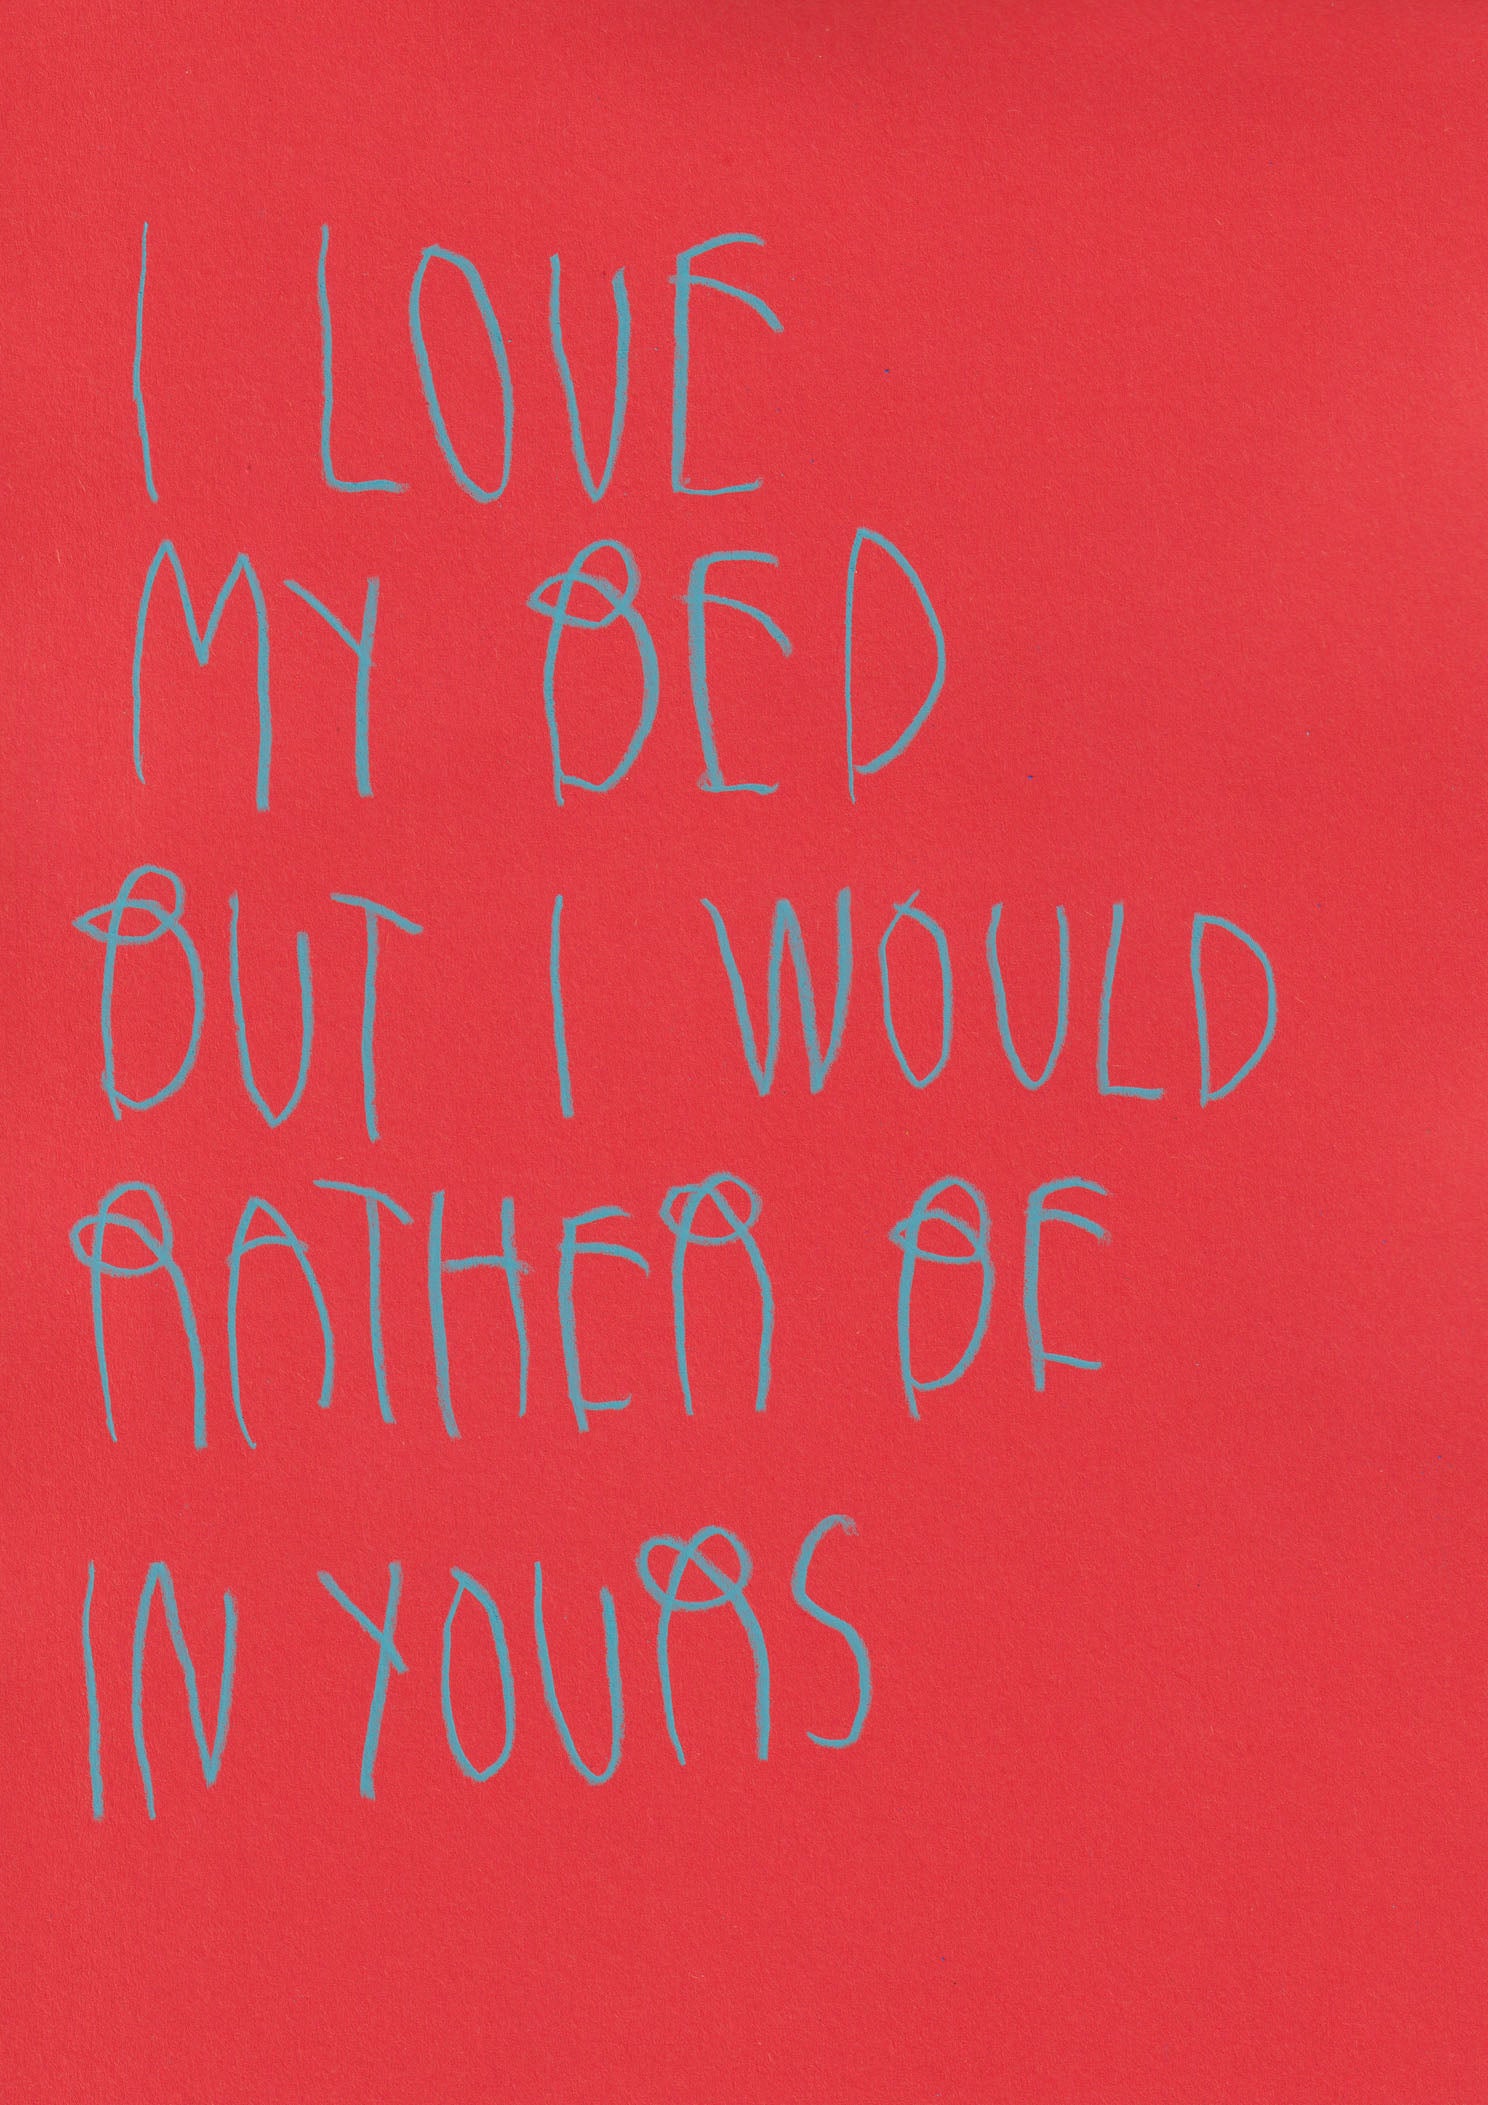 I LOVE
MY BED
BUT I WOULD
RATHER BE
IN YOURS